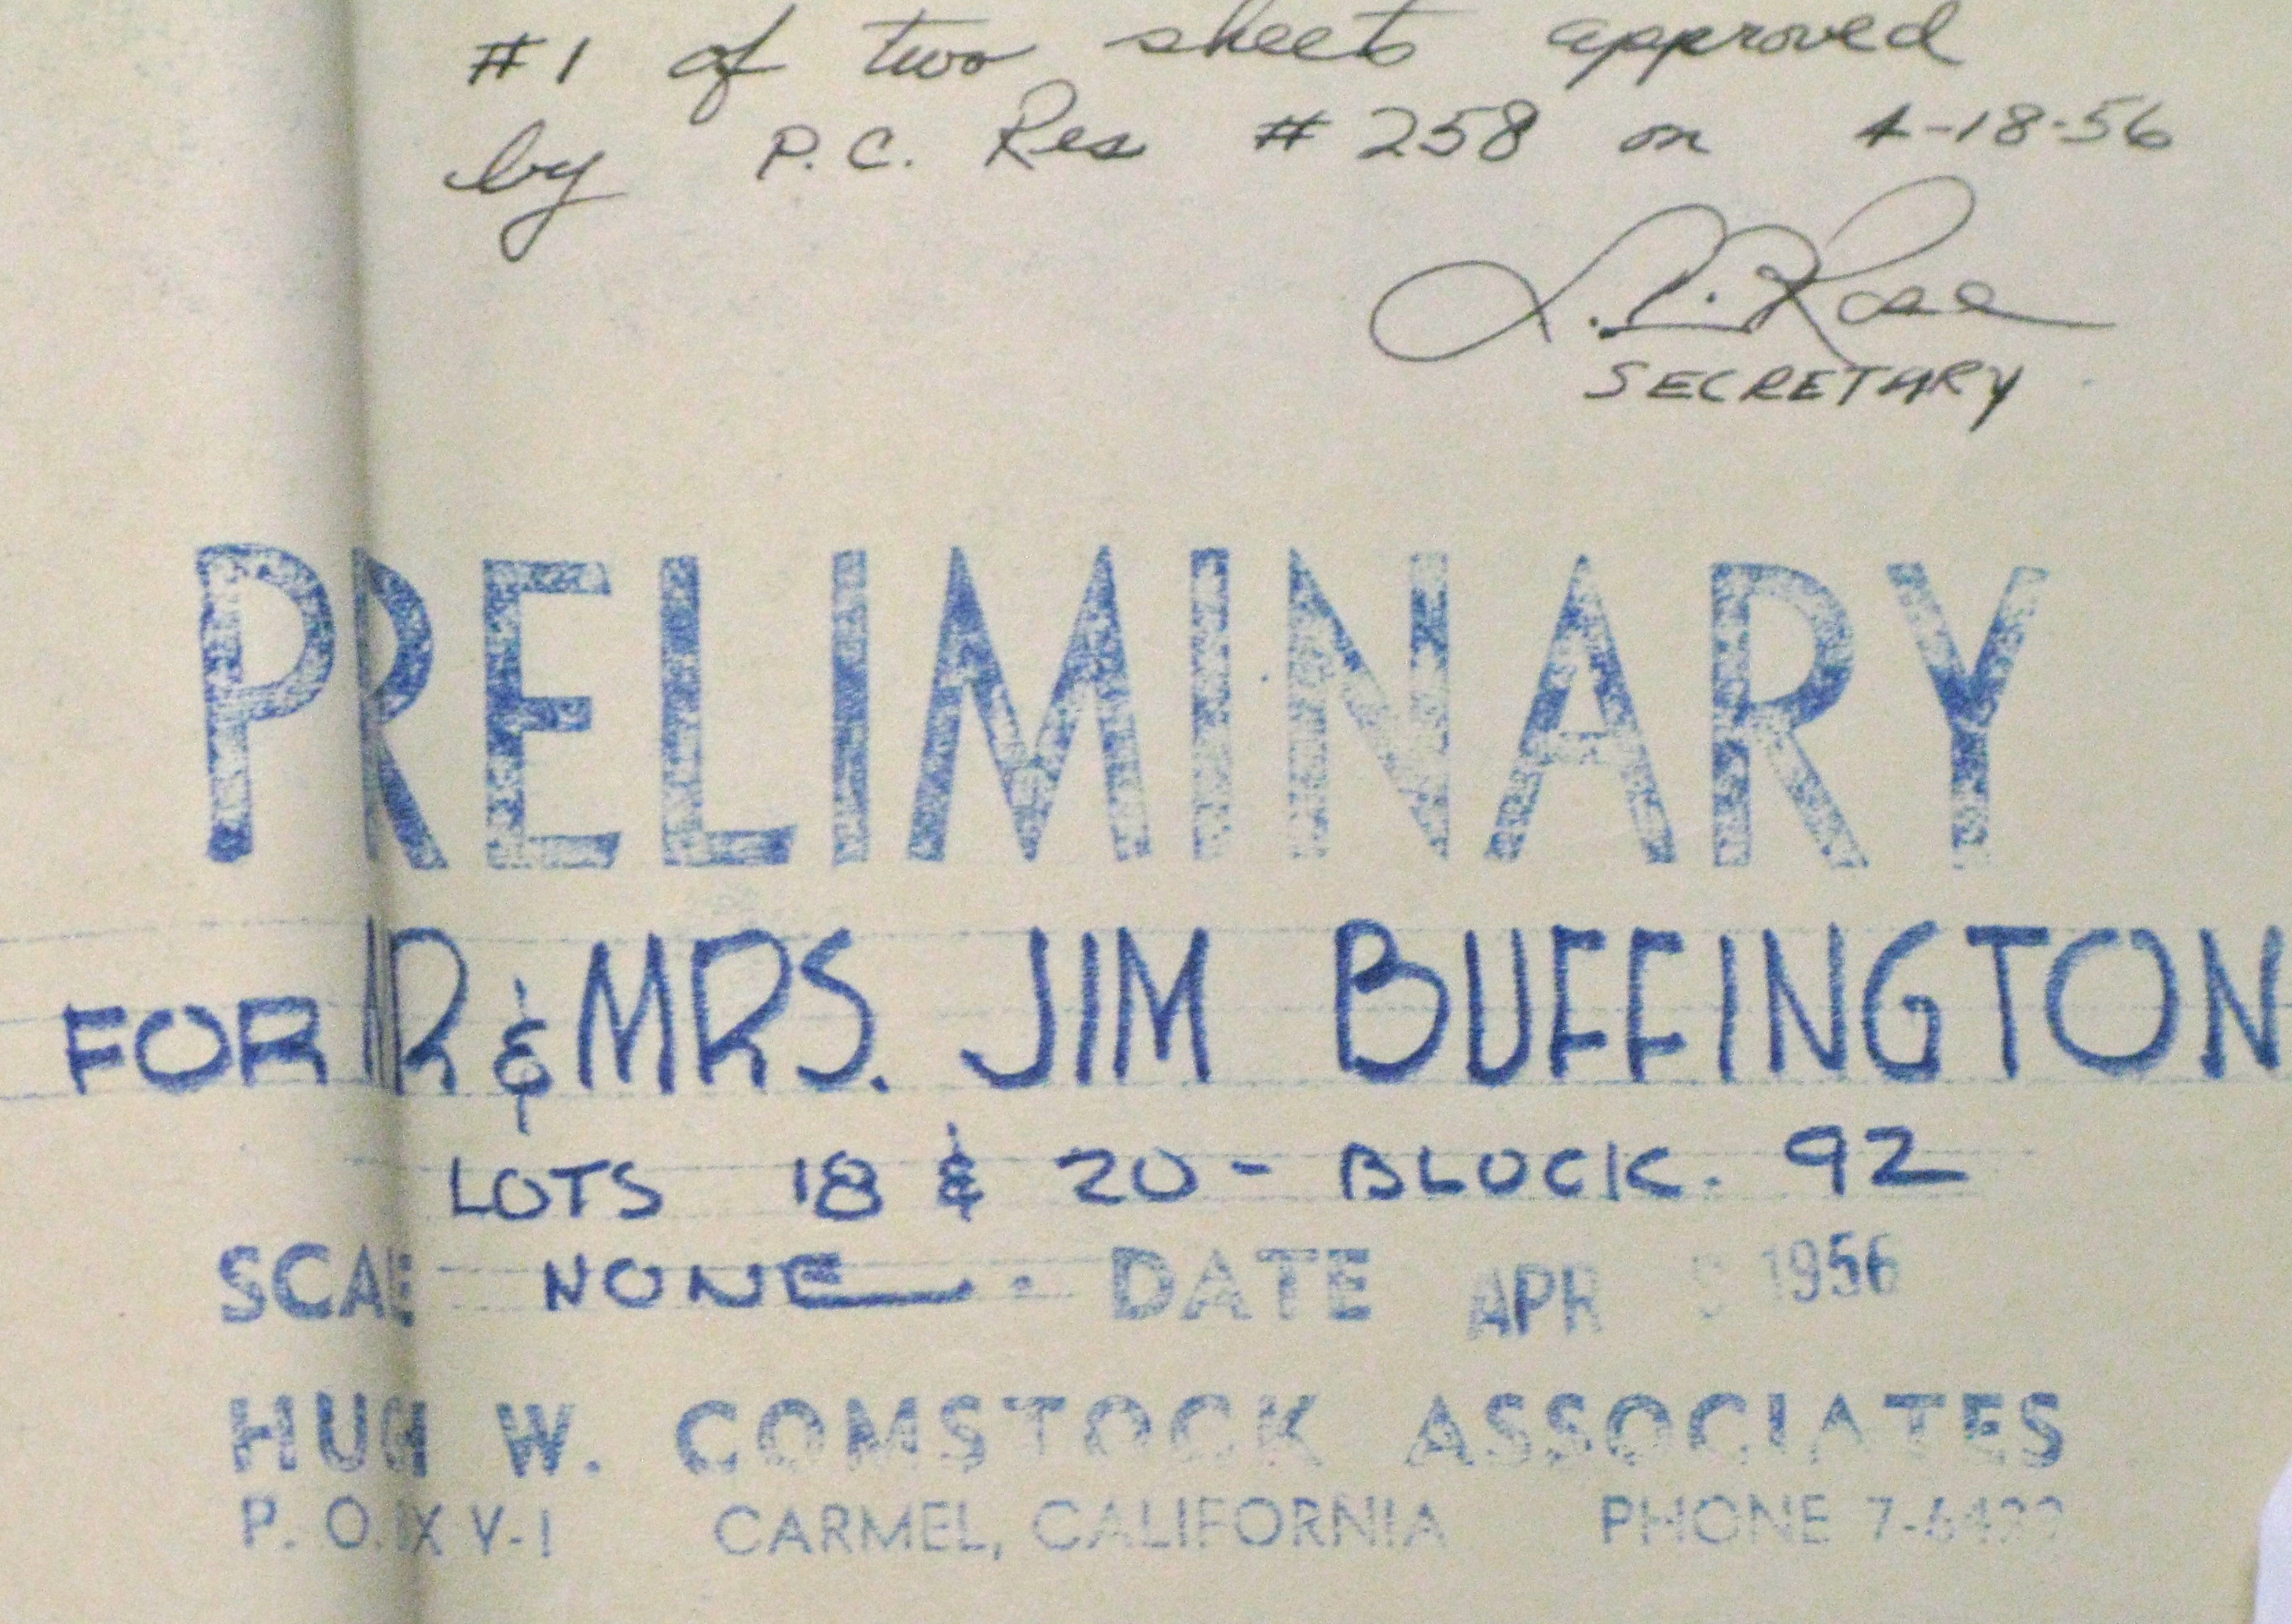 #1 of two sheets approved
by P.C. Res #258 on 4-18-56
SECRETARY
PRELIMINARY
FOR & MRS. JIM BUFFINGTON
LOTS 18 & 20 - BLOCK. 92
NONE . DATE APR 1956
W. COMSTOCK ASSOCIATES
P. O. V-1 CARMEL, CALIFORNIA PHONE